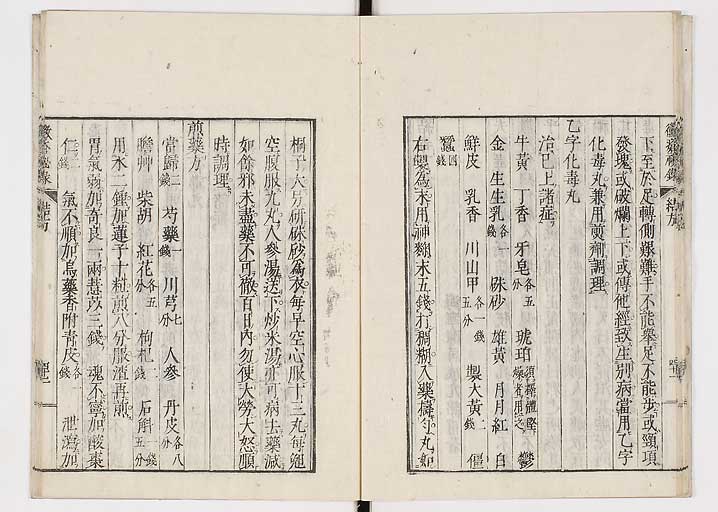 下至於足轉側艱難手不能舉足不能步或頸項
發塊或破爛上下或傳他經致生別病當用乙字
化毒丸兼用煎劑調理
乙字化毒丸
治巳上諸症
牛黃 丁香 牙皂各五分 琥珀
金 生生乳各一錢 硃砂 雄黃 月月紅 白
鮮皮 乳香 川山甲各一錢五分 製大黃二錢 殭
蠶四錢
右製為末用神麯末五錢打稠糊入藥搗勻丸如
桐子大分研硃砂為衣每早空心服十三丸每晚
空腹服九丸人參湯送下炒米湯亦可病去藥減
如餘邪未盡藥不可徹百日內勿使大勞大怒順
時調理
煎藥方
當歸二錢 芍藥一錢 川芎七分 人參 丹皮各八分
膽艸 柴胡 紅花各五分 枸杞一錢 石斛一錢五分
用水二鐘加蓮子十粒煎八分服渣再煎
胃氣弱加奇良一兩薏苡三錢 魂不寧加酸棗
仁二錢 氣不順加烏藥香附青皮各一錢 泄瀉加